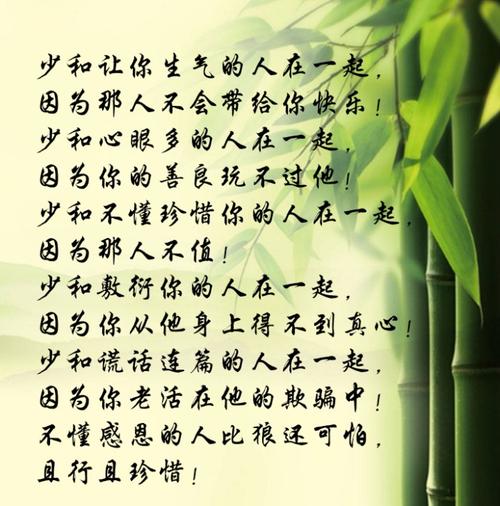 少和让你生气的人在一起，
因为那人不会带给你快乐！
少和心眼多的人在一起，
因为你的善良玩不过他！
少和不懂珍惜你的人在一起，
因为那人不值！
少和敷衍你的人在一起，
因为你从他身上得不到真心！
少和谎话连篇的人在一起，
因为你老活在他的欺骗中！
不懂感恩的人比狼还可怕，
且行且珍惜！